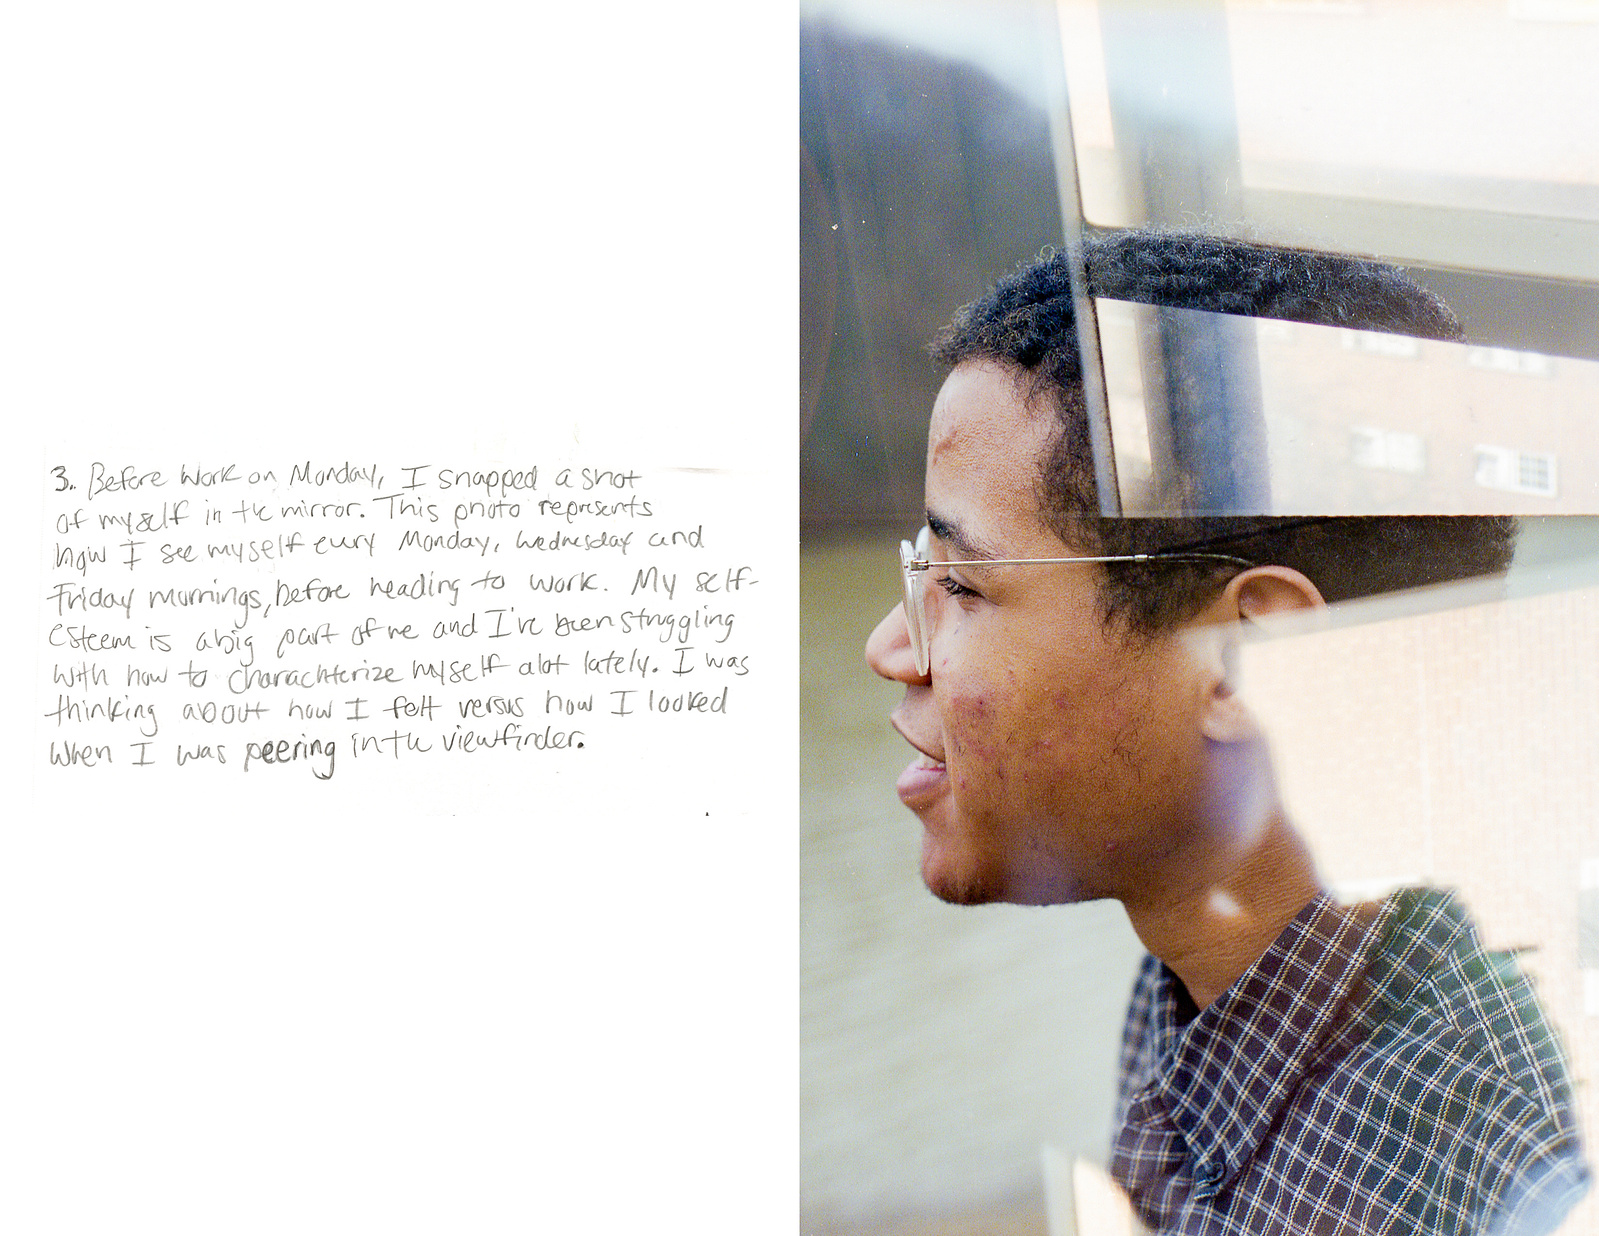 3. Before work on Monday, I snapped a shot
of myself in the mirror. This photo represents
how I see myself every Monday, Wednesday and
Friday mornings, before heading to work. My self-
esteem is a big part of me and I've been struggling
with how to charachterize myself alot lately. I was
thinking about how I felt versus how I looked
when I was peering in the viewfinder.